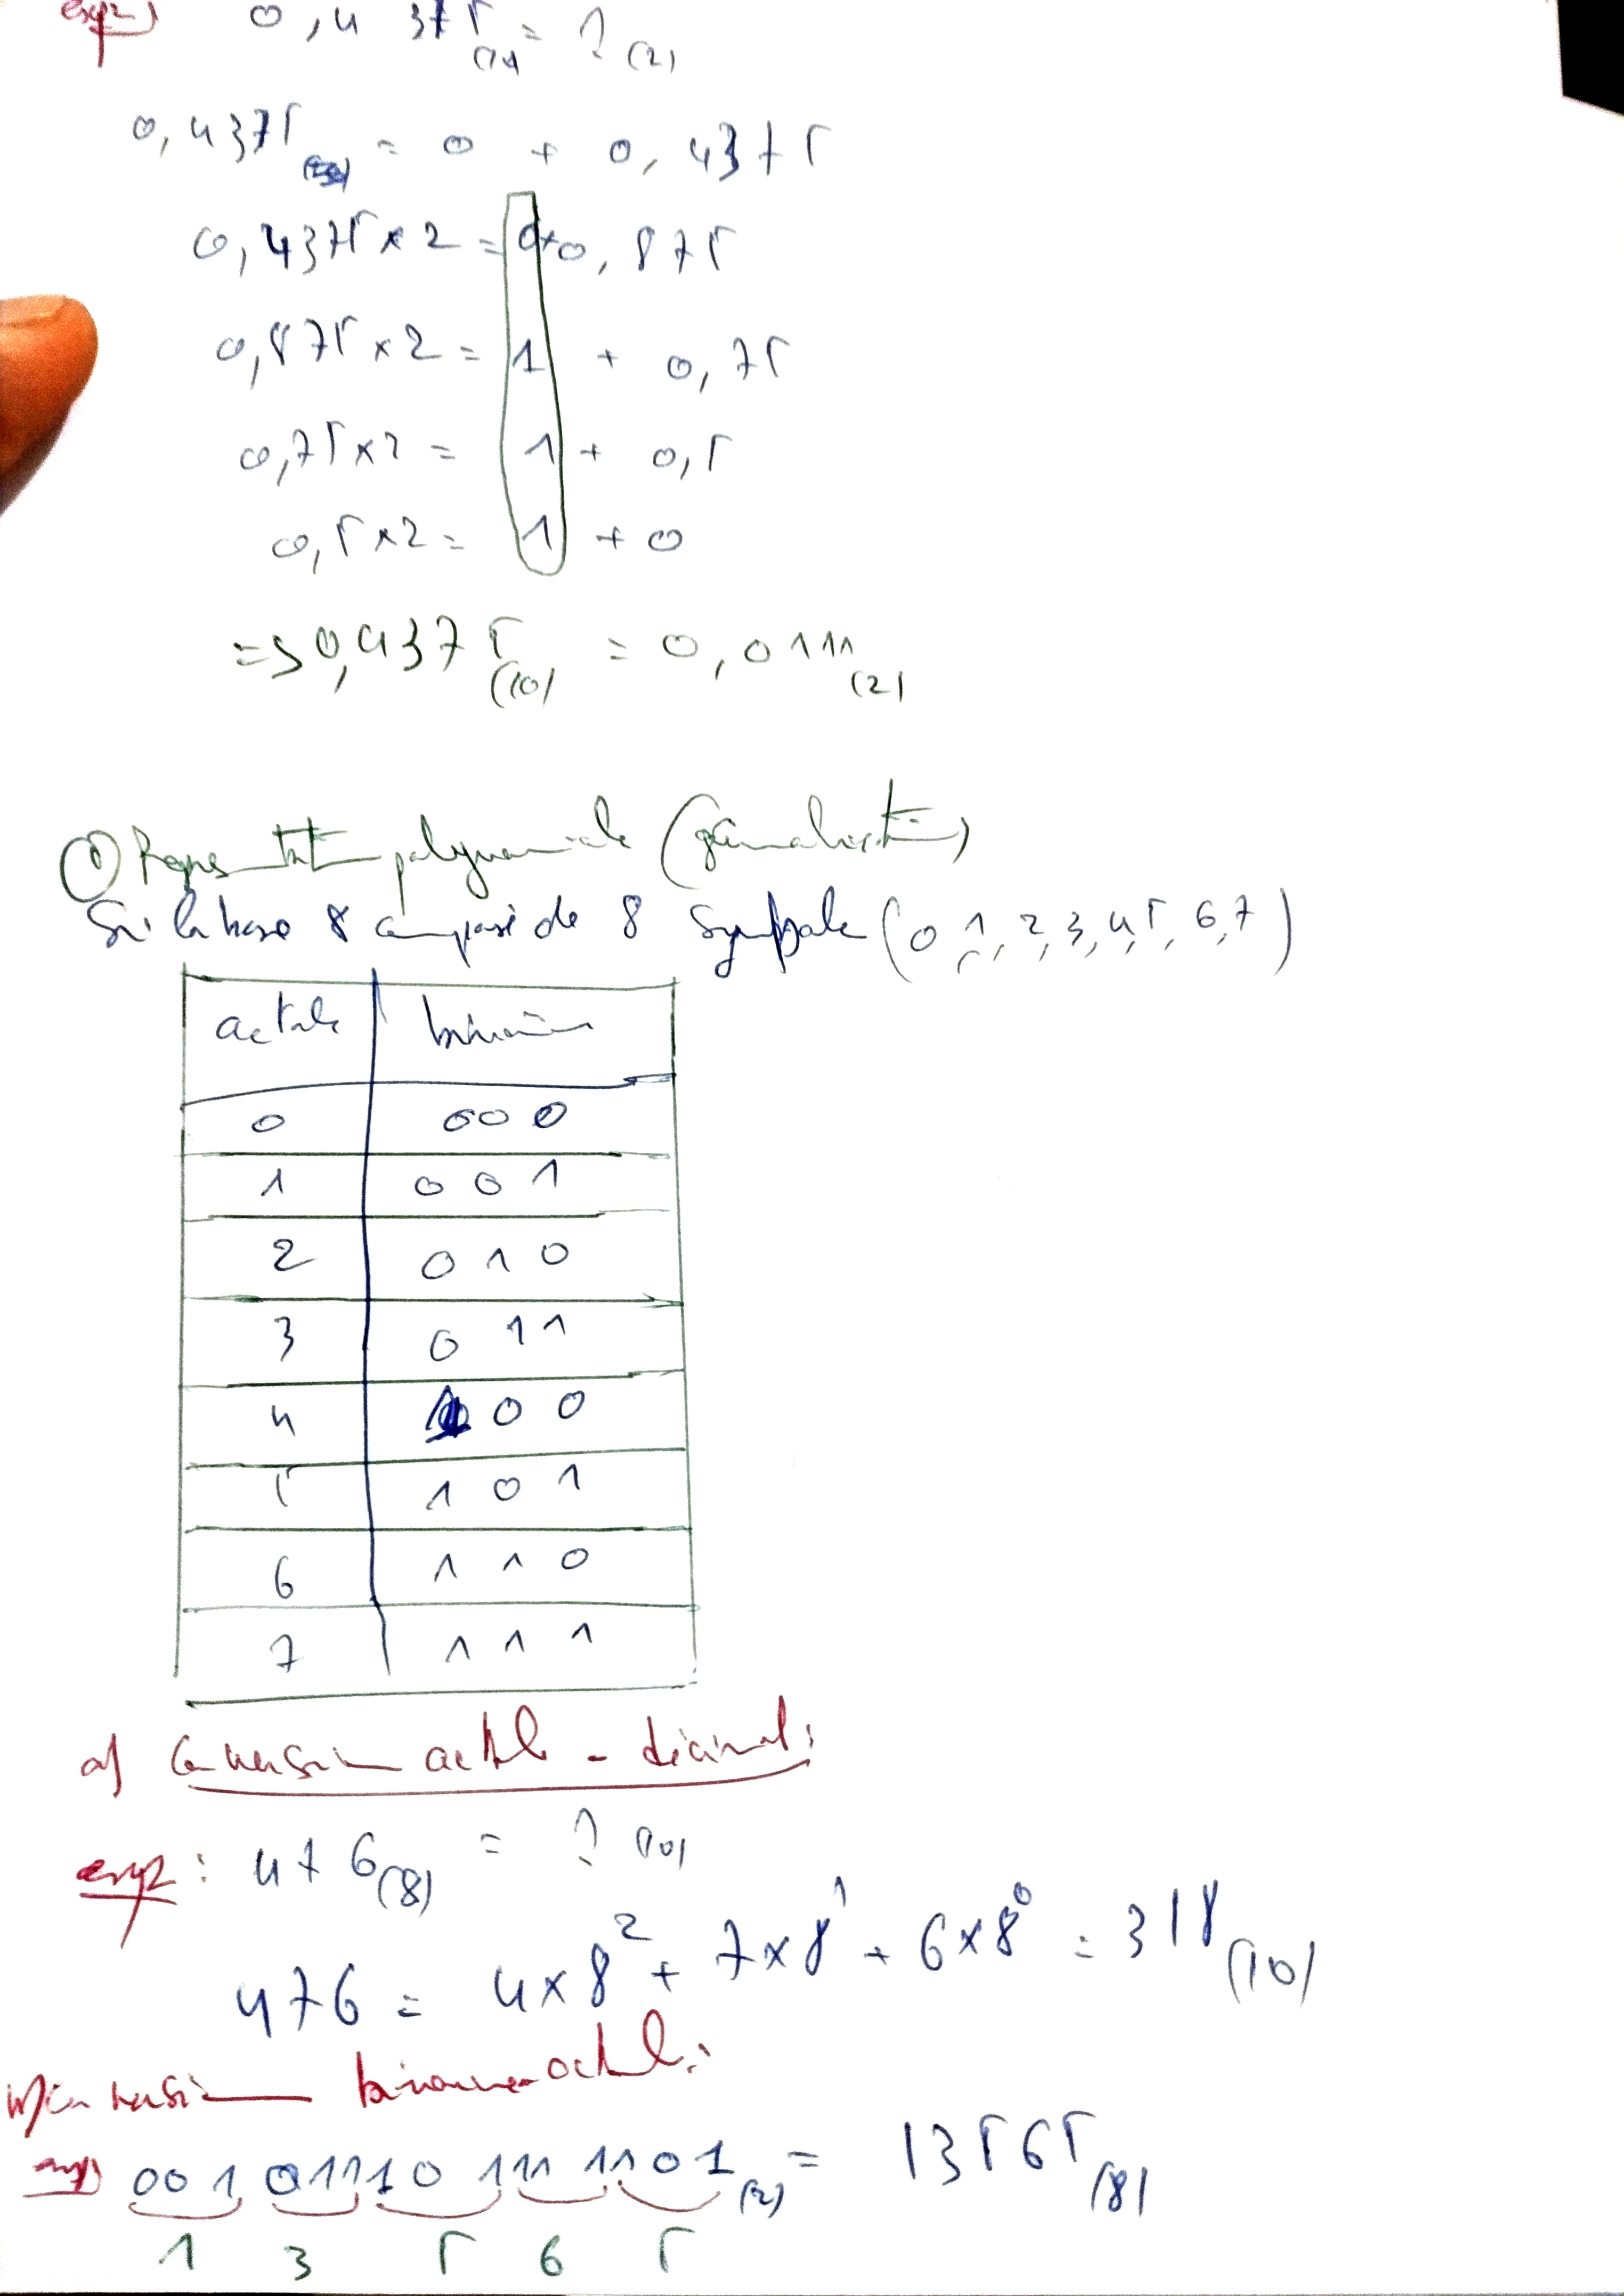 exp2) 0,4375(10) = ?(2)
0,4375(10) = 0 + 0,4375
0,4375 x 2 = 0 + 0,875
0,875 x 2 = 1 + 0,75
0,75 x 2 = 1 + 0,5
0,5 x 2 = 1 + 0
=> 0,4375(10) = 0,0111(2)
polynomiale
Si la base 8 composé de 8 Symbole (0, 1, 2, 3, 4, 5, 6, 7)
octale binaire
0 000
1 001
2 010
3 011
4 100
5 101
6 110
7 111
a) Conversion octale - décimal:
exp: 476(8) = ?(10)
476 = 4x8² + 7x8¹ + 6x8⁰ = 318(10)
Conversion binaire octal:
exp) 001 011 101 11 1101(2) = 13565(8)
1 3 5 6 5